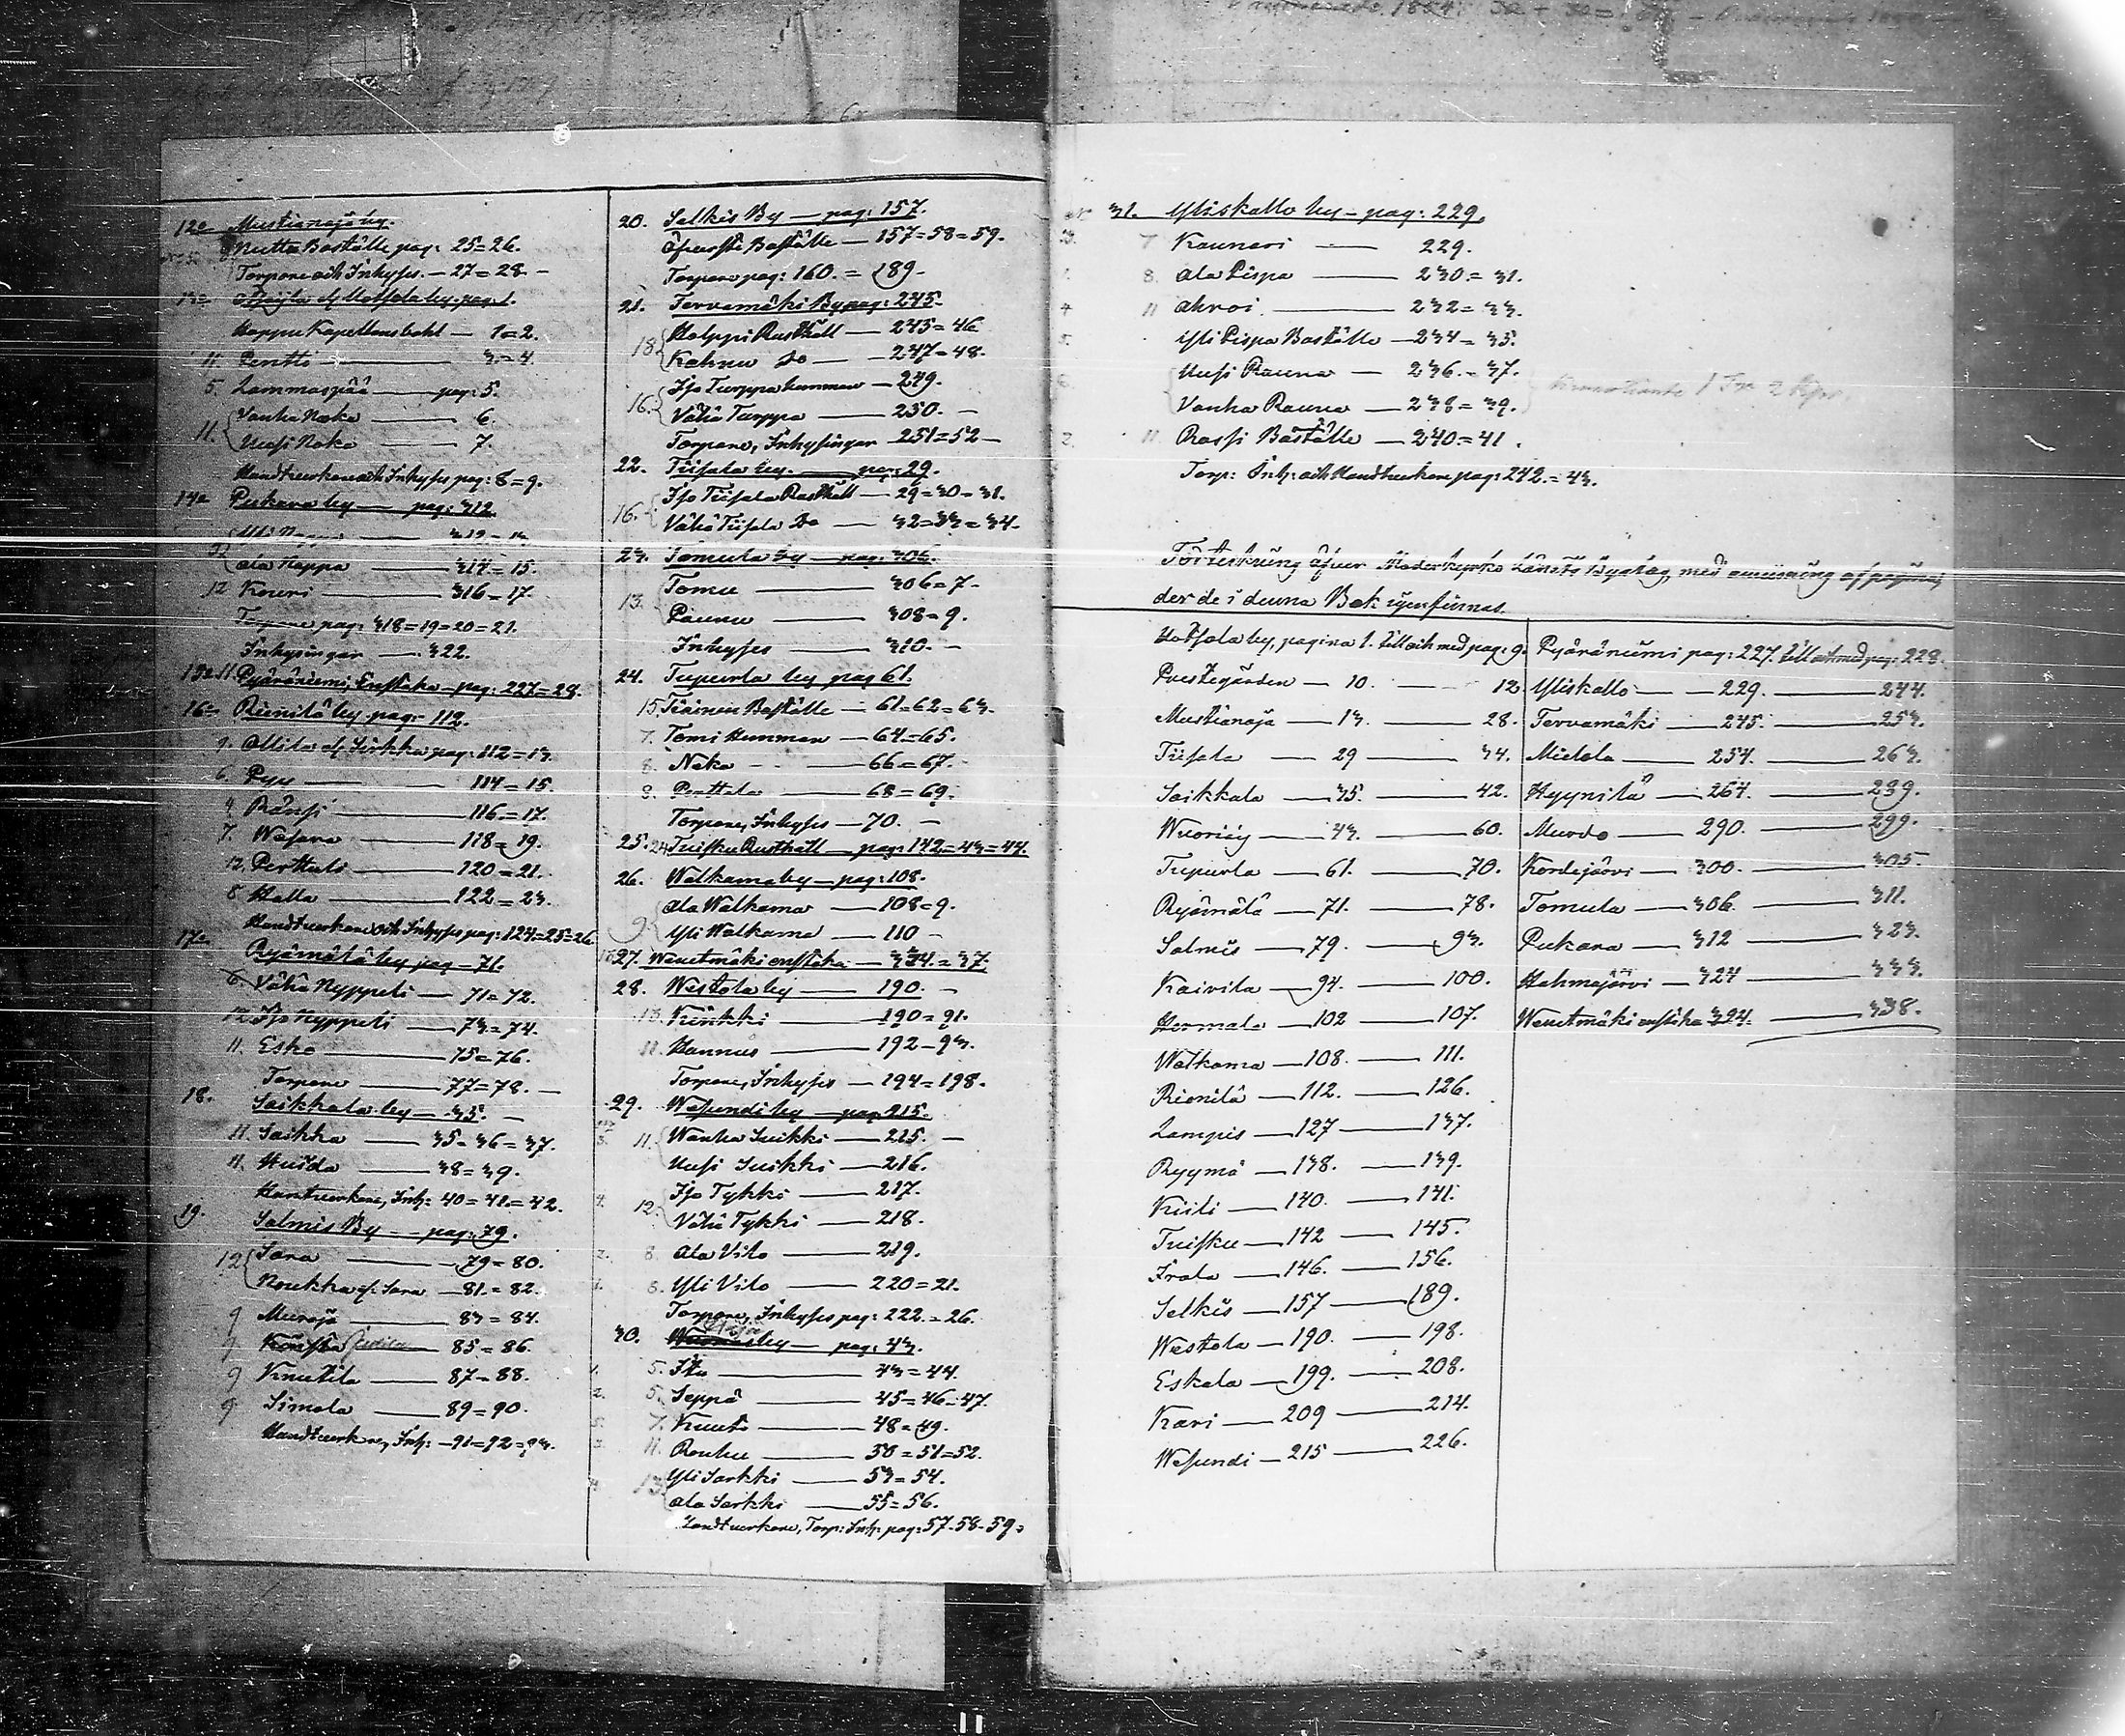 12o Mustianoja by.
Nutta Boställe pag: 25=26.
Torpare och Inhyses. — 27=28. —
13o Hotsola by. pag. 1.
Kappu Kapellans bohl — 1=2.
11. Pentti — 3=4.
5. Lammaspää — pag: 5.
11. Vanha Noko — 6.
Uusi Noko — 7.
Handtverkare och Inhyses pag: 8=9.
14o Pukara by — pag: 312.
Yli Nappa — 312=13.
Ala Nappa — 314=15.
12 Kouri — 316=17.
Torpare pag: 318=19=20=21.
Inhysingar — 322.
15o 11. Pyäräniemi, Enstaka — pag: 227=28.
16o Rienilä by pag: 112.
9. Ollila of Sirkka pag: 112=13.
6. Pyy — 114=15.
9. Ränsi — 116=17.
7. Wasara — 118=19.
12. Perttuli — 120=21.
8. Halla — 122=23.
Handtverkare och Inhyses pag: 124=25=26.
17o Ryämälä by pag — 71.
6. Vähä Nyppeli — 71=72.
12. Iso Nyppeli — 73=74.
11. Esko — 75=76.
Torpare — 77=78. —
18. Saikkala by — 35. —
11. Saikka — 35=36=37.
11. Huida — 38=39.
Hantverkare, Inh: 40=41=42.
19. Salmis By — pag: 79.
12 Sara — 79=80.
Noukka of. Sara — 81.=82.
9 Muroja — 83=84.
9 85=86.
9 Knutila — 87=88.
9 Simola — 89=90.
Handtverkare, Inh: — 91=92=93.
20. Selkis By — pag: 157.
Öfverste Boställe — 157=58=59.
Torpare pag: 160.=189.
21. Tervamäki By pag: 245.
18 Holppi Rusthåll — 245=46
Kahnu Do — 247=48.
16. Iso Turppa hemman — 249.
Vähä Turppa — 250. —
Torpare, Inhysingar 251=52 —
22. Tiisala by. — pag: 29.
16. Iso Tiisala Rusthåll — 29=30=31.
Vähä Tiisala Do — 32=33=34.
23. Tomula By — pag: 306.
13. Tomu — 306=7 —
Paunu — 308=9.
Inhyses — 310. —
24. Tupurla by pag 61.
15. Tiainen Boställe — 61=62=63.
7. Tomi Hemman — 64=65.
8. Noko — 66=67.
8. Perttala — 68=69.
Torpare, Inhyses — 70. —
25. 24 Tuisku Rusthåll — pag: 142=43=44.
26. Walkama by — pag: 108.
9. Ala Walkama — 108=9.
Yli Walkama — 110 —
27. Wenetmäki enstaka — 334=37.
28. Westola by — 190. —
13. Kinkki — 190=91.
11. Hannus — 192=93.
Torpare, Inhyses — 194=198.
29. Wesundi by — pag 215.
11. Wanha Suikki — 215. —
Uusi Suikki — 216.
12. Iso Tykki — 217.
Vähä Tykki — 218.
8. Ala Vito — 219.
8. Yli Vito — 220=21.
Torpare, Inhyses pag: 222.=26.
30. by — pag: 43.
5. Itu — 43=44.
5. Seppä — 45=46=47.
7. Knuuts — 48=49.
11. Rouhu — 50=51=52.
13. Yli Sarkki — 53=54.
Ala Sarkki — 55=56.
Handtverkare, Torp: Inh: pag: 57.58.59.
31. Yliskallo by — pag: 229.
7 Kauneri — 229.
8. Ala Pispa — 230.=31.
11 Ahroi. — 232=33.
Yli Pispa Boställe — 234=35.
Uusi Rauna — 236.=37.
Vanha Rauna — 238=39.
11. Rassi Boställe — 240=41.
Torp: Inh: och Handtverkare pag: 242.=43.
Förteckning öfver Moderkyrko Länets Byalag, med anvisning af pagina,
der de i denna Bok igenfinnas.
Hotsola by, pagina 1. till och med pag: 9.
Prestegården — 10. — 12.
Mustianoja — 13. — 28.
Tiisala — 29 — 34.
Saikkala — 35. — 42.
Wuoriäy — 43. — 60.
Tupurla — 61. — 70.
Ryämälä — 71. — 78.
Salmis — 79. — 93.
Kaivila — 94. — 100.
Hermala — 102 — 107.
Walkama — 108. — 111.
Rienilä — 112. — 126.
Lampis — 127 — 137.
Ryymä — 138. — 139.
Kiili — 140. — 141.
Tuisku — 142 — 145.
Irala — 146. — 156.
Selkis — 157 — 189.
Westola — 190. — 198.
Eskala — 199. — 208.
Kari — 209 — 214.
Wesundi — 215 — 226.
Pyäräniemi pag: 227. till och med pag: 228.
Yliskallo — 229. — 244.
Tervamäki — 245. — 253.
Mielola — 254. — 263.
Hyynilä — 264. — 289.
Murdo — 290. — 299.
Kordejärvi — 300. — 305.
Tomula — 306. — 311.
Pukara — 312 — 323.
Hahmajärvi — 324 — 333.
Wenetmäki enstaka 334. — 338.